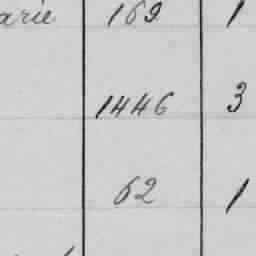 arie 169 1
1446 3
62 1